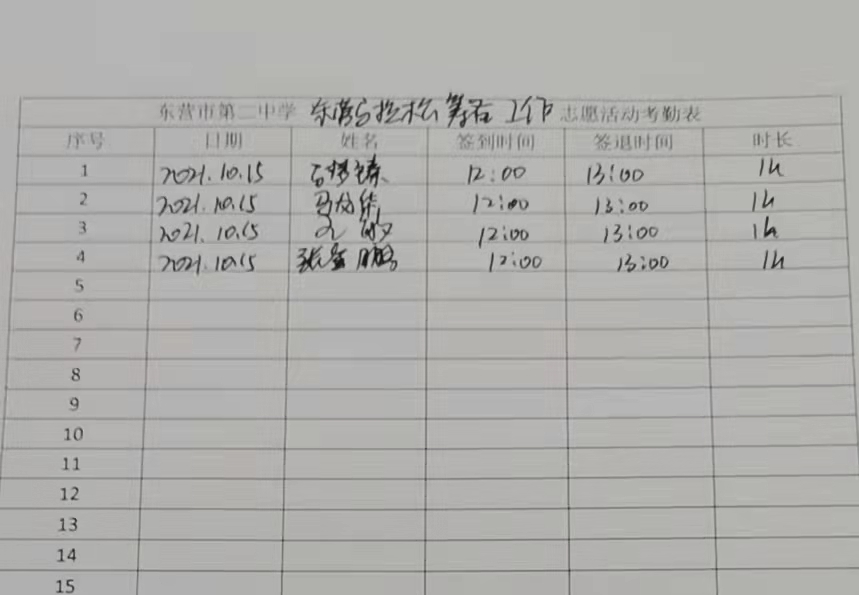 东营市第二中学 东营马拉松筹备工作 志愿活动考勤表
序号 日期 姓名 签到时间 签退时间 时长
1 2021.10.15 12:00 13:00 1h
2 2021.10.15 12:00 13:00 1h
3 2021.10.15 12:00 13:00 1h
4 2021.10.15 12:00 13:00 1h
5
6
7
8
9
10
11
12
13
14
15